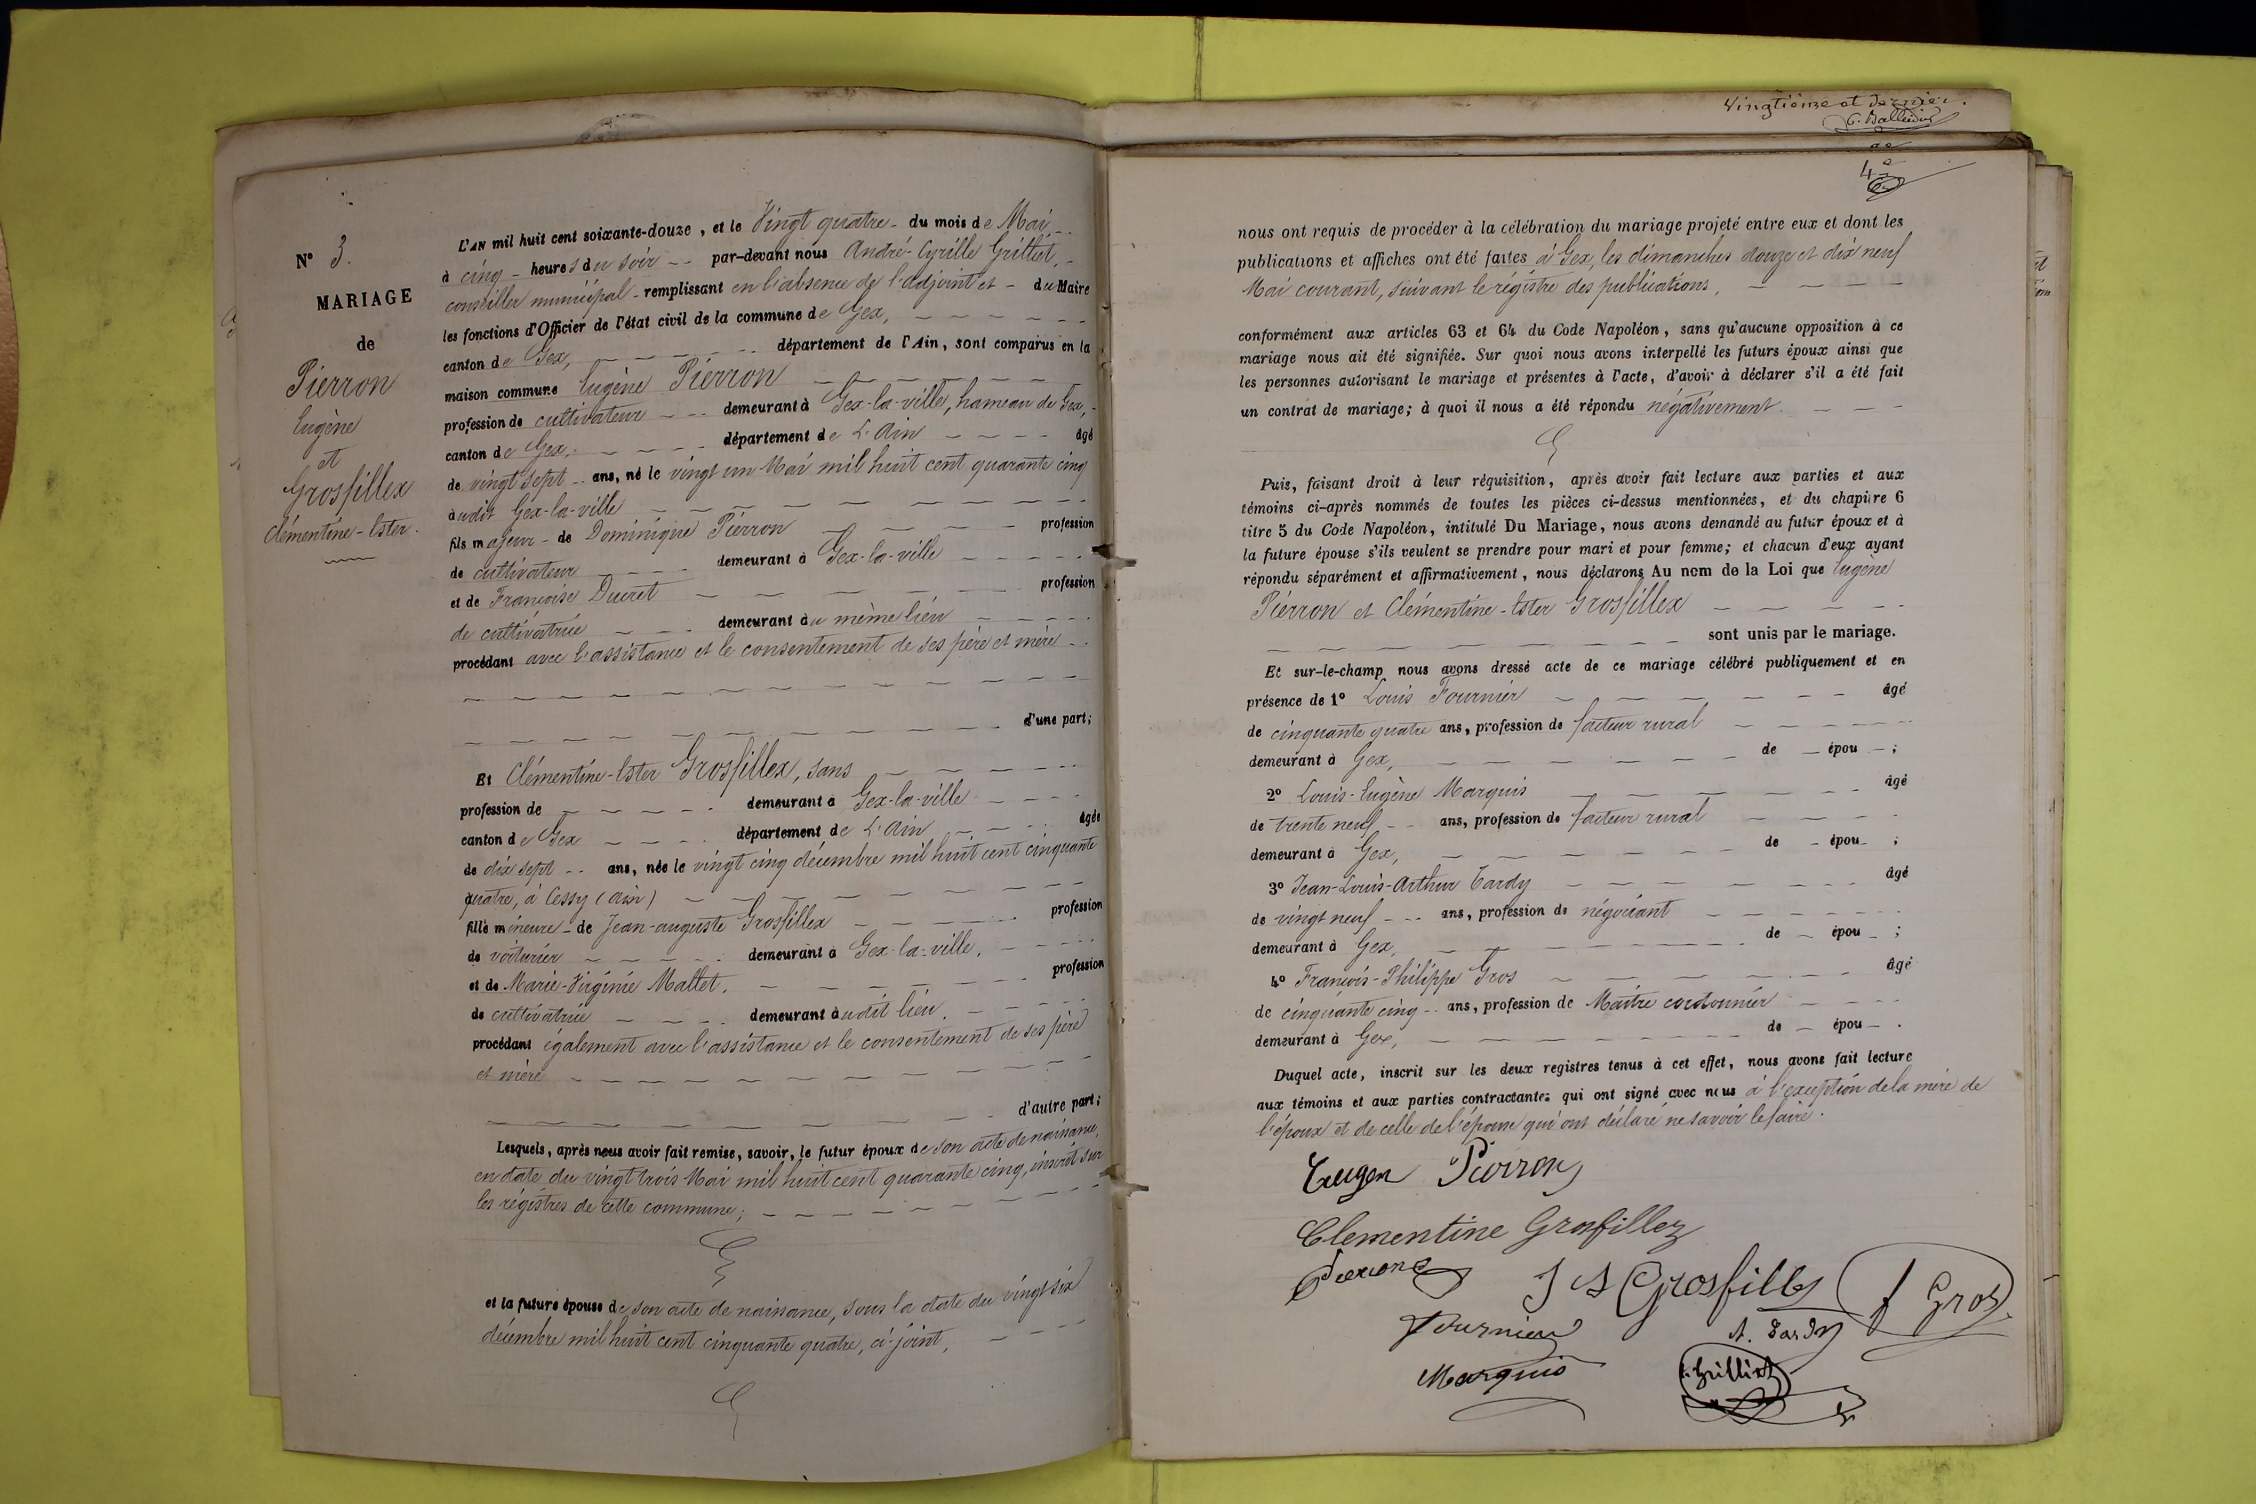 Nº 3.
MARIAGE
de
Pierron
Eugène
et
Grosfillex
Clémentine-Ester.
L'AN mil huit cent soixante-douze, et le Vingt quatre du mois de Mai
à cinq heures du soir par-devant nous André-Cyrille Grilliet,
conseiller municipal remplissant en l'absence de l'adjoint et du Maire
les fonctions d'Officier de l'état civil de la commune de Gex,
canton de Gex, département de l'Ain, sont comparus en la
maison commune Eugène Pierron
profession de cultivateur demeurant à Gex-la-ville, hameau de Gex,
canton de Gex, département de L'Ain âgé
de vingt sept ans, né le vingt un Mai mil huit cent quarante cinq
audit Gex-la-ville
fils majeur de Dominique Pierron profession
de cultivateur demeurant à Gex-la-ville
et de Françoise Ducret profession
de cultivatrice demeurant au même lieu
procédant avec l'assistance et le consentement de ses père et mère
d'une part;
Et Clémentine-Ester Grosfillex, sans
profession de demeurant à Gex-la-ville
canton de Gex département de L'Ain âgée
de dix sept ans, née le vingt cinq décembre mil huit cent cinquante
quatre, à Cessy (Ain)
fille mineure de Jean-auguste Grosfillex profession
de voiturier demeurant à Gex-la-ville.
et de Marie-Virginie Mallet. profession
de cultivatrice demeurant audit lieu.
procédant également avec l'assistance et le consentement de ses père
et mère
d'autre part;
Lesquels, après nous avoir fait remise, savoir, le futur époux de son acte de naissance,
en date du vingt trois Mai mil huit cent quarante cinq, inscrit sur
les régistres de cette commune;
et la future épouse de son acte de naissance, sous la date du vingt six
décembre mil huit cent cinquante quatre, ci-joint,
Vingtième et dernier.
4
nous ont requis de procéder à la célébration du mariage projeté entre eux et dont les
publications et affiches ont été faites à Gex, les dimanches douze et dix neuf
Mai courant, suivant le régistre des publications,
conformément aux articles 63 et 64 du Code Napoléon, sans qu'aucune opposition à ce
mariage nous ait été signifiée. Sur quoi nous avons interpellé les futurs époux ainsi que
les personnes autorisant le mariage et présentes à l'acte, d'avoir à déclarer s'il a été fait
un contrat de mariage; à quoi il nous a été répondu négativement.
Puis, faisant droit à leur réquisition, après avoir fait lecture aux parties et aux
témoins ci-après nommés de toutes les pièces ci-dessus mentionnées, et du chapitre 6
titre 5 du Code Napoléon, intitulé Du Mariage, nous avons demandé au futur époux et à
la future épouse s'ils veulent se prendre pour mari et pour femme; et chacun d'eux ayant
répondu séparément et affirmativement, nous déclarons Au nom de la Loi que Eugène
Pierron et Clémentine-Ester Grosfillex
sont unis par le mariage.
Et sur-le-champ nous avons dressé acte de ce mariage célébré publiquement et en
présence de 1º Louis Fournier âgé
de cinquante quatre ans, profession de facteur rural
demeurant à Gex, de épou ;
2º Louis-Eugène Marquis âgé
de trente neuf ans, profession de facteur rural
demeurant à Gex, de épou ;
3º Jean-Louis-Arthur Tardy âgé
de vingt neuf ans, profession de négociant
demeurant à Gex, de épou ;
4º François-Philippe Gros âgé
de cinquante cinq ans, profession de Maître cordonnier
demeurant à Gex, de épou .
Duquel acte, inscrit sur les deux registres tenus à cet effet, nous avons fait lecture
aux témoins et aux parties contractantes qui ont signé avec nous à l'exception de la mère de
l'époux et de celle de l'épouse qui ont déclaré ne savoir le faire.
Eugen Pierron
Clementine Grosfillex
Pierron J A Grosfillex f Gros
Fournier A. Tardy
Marquis Grilliet